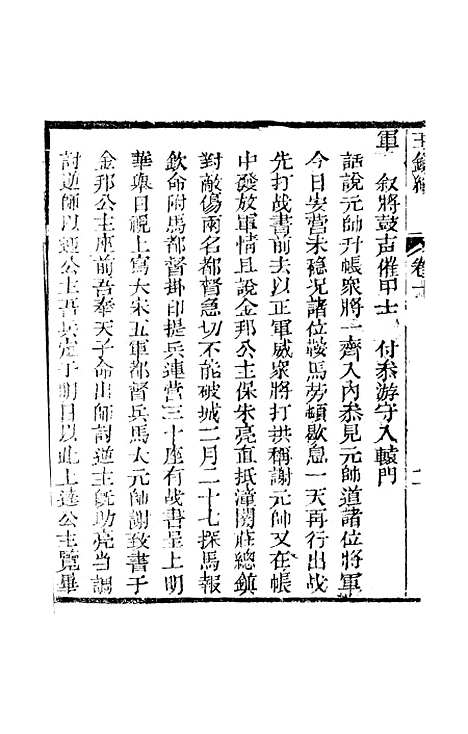 軍 叙將鼓声催甲士 付叅游守入轅門
話說元帥升帳衆將一齊入內叅見元帥道諸位將軍
今日安营未稳况諸位鞍馬劳頓歇息一天再行出战
先打战書前去以正軍威衆將打拱稱謝元帥又在帳
中發放軍情且說金邦公主保朱亮面抵潼関莊總鎮
對敵傷兩名都督急切不能破城二月二十七探馬報
欽命附馬都督掛印提兵連营三十座有战書呈上明
華舉目視上寫大宋五軍都督兵馬大元帥謝致書于
金邦公主座前吾奉天子命出師討逆主旣助亮当調
討逆師以迎公主吾兵定于明日以此上達公主覽畢